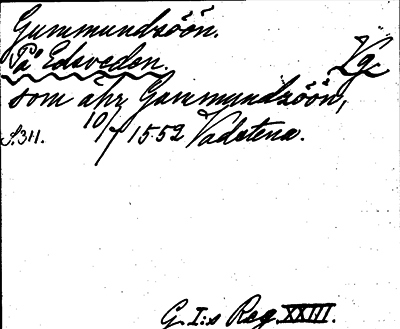 Gummundzöön.
På Edsveden. Vg
som ähr Gummundzöön,
S.311. 10/7 1552 Vadstena.
G. I:s Reg. XXIII.